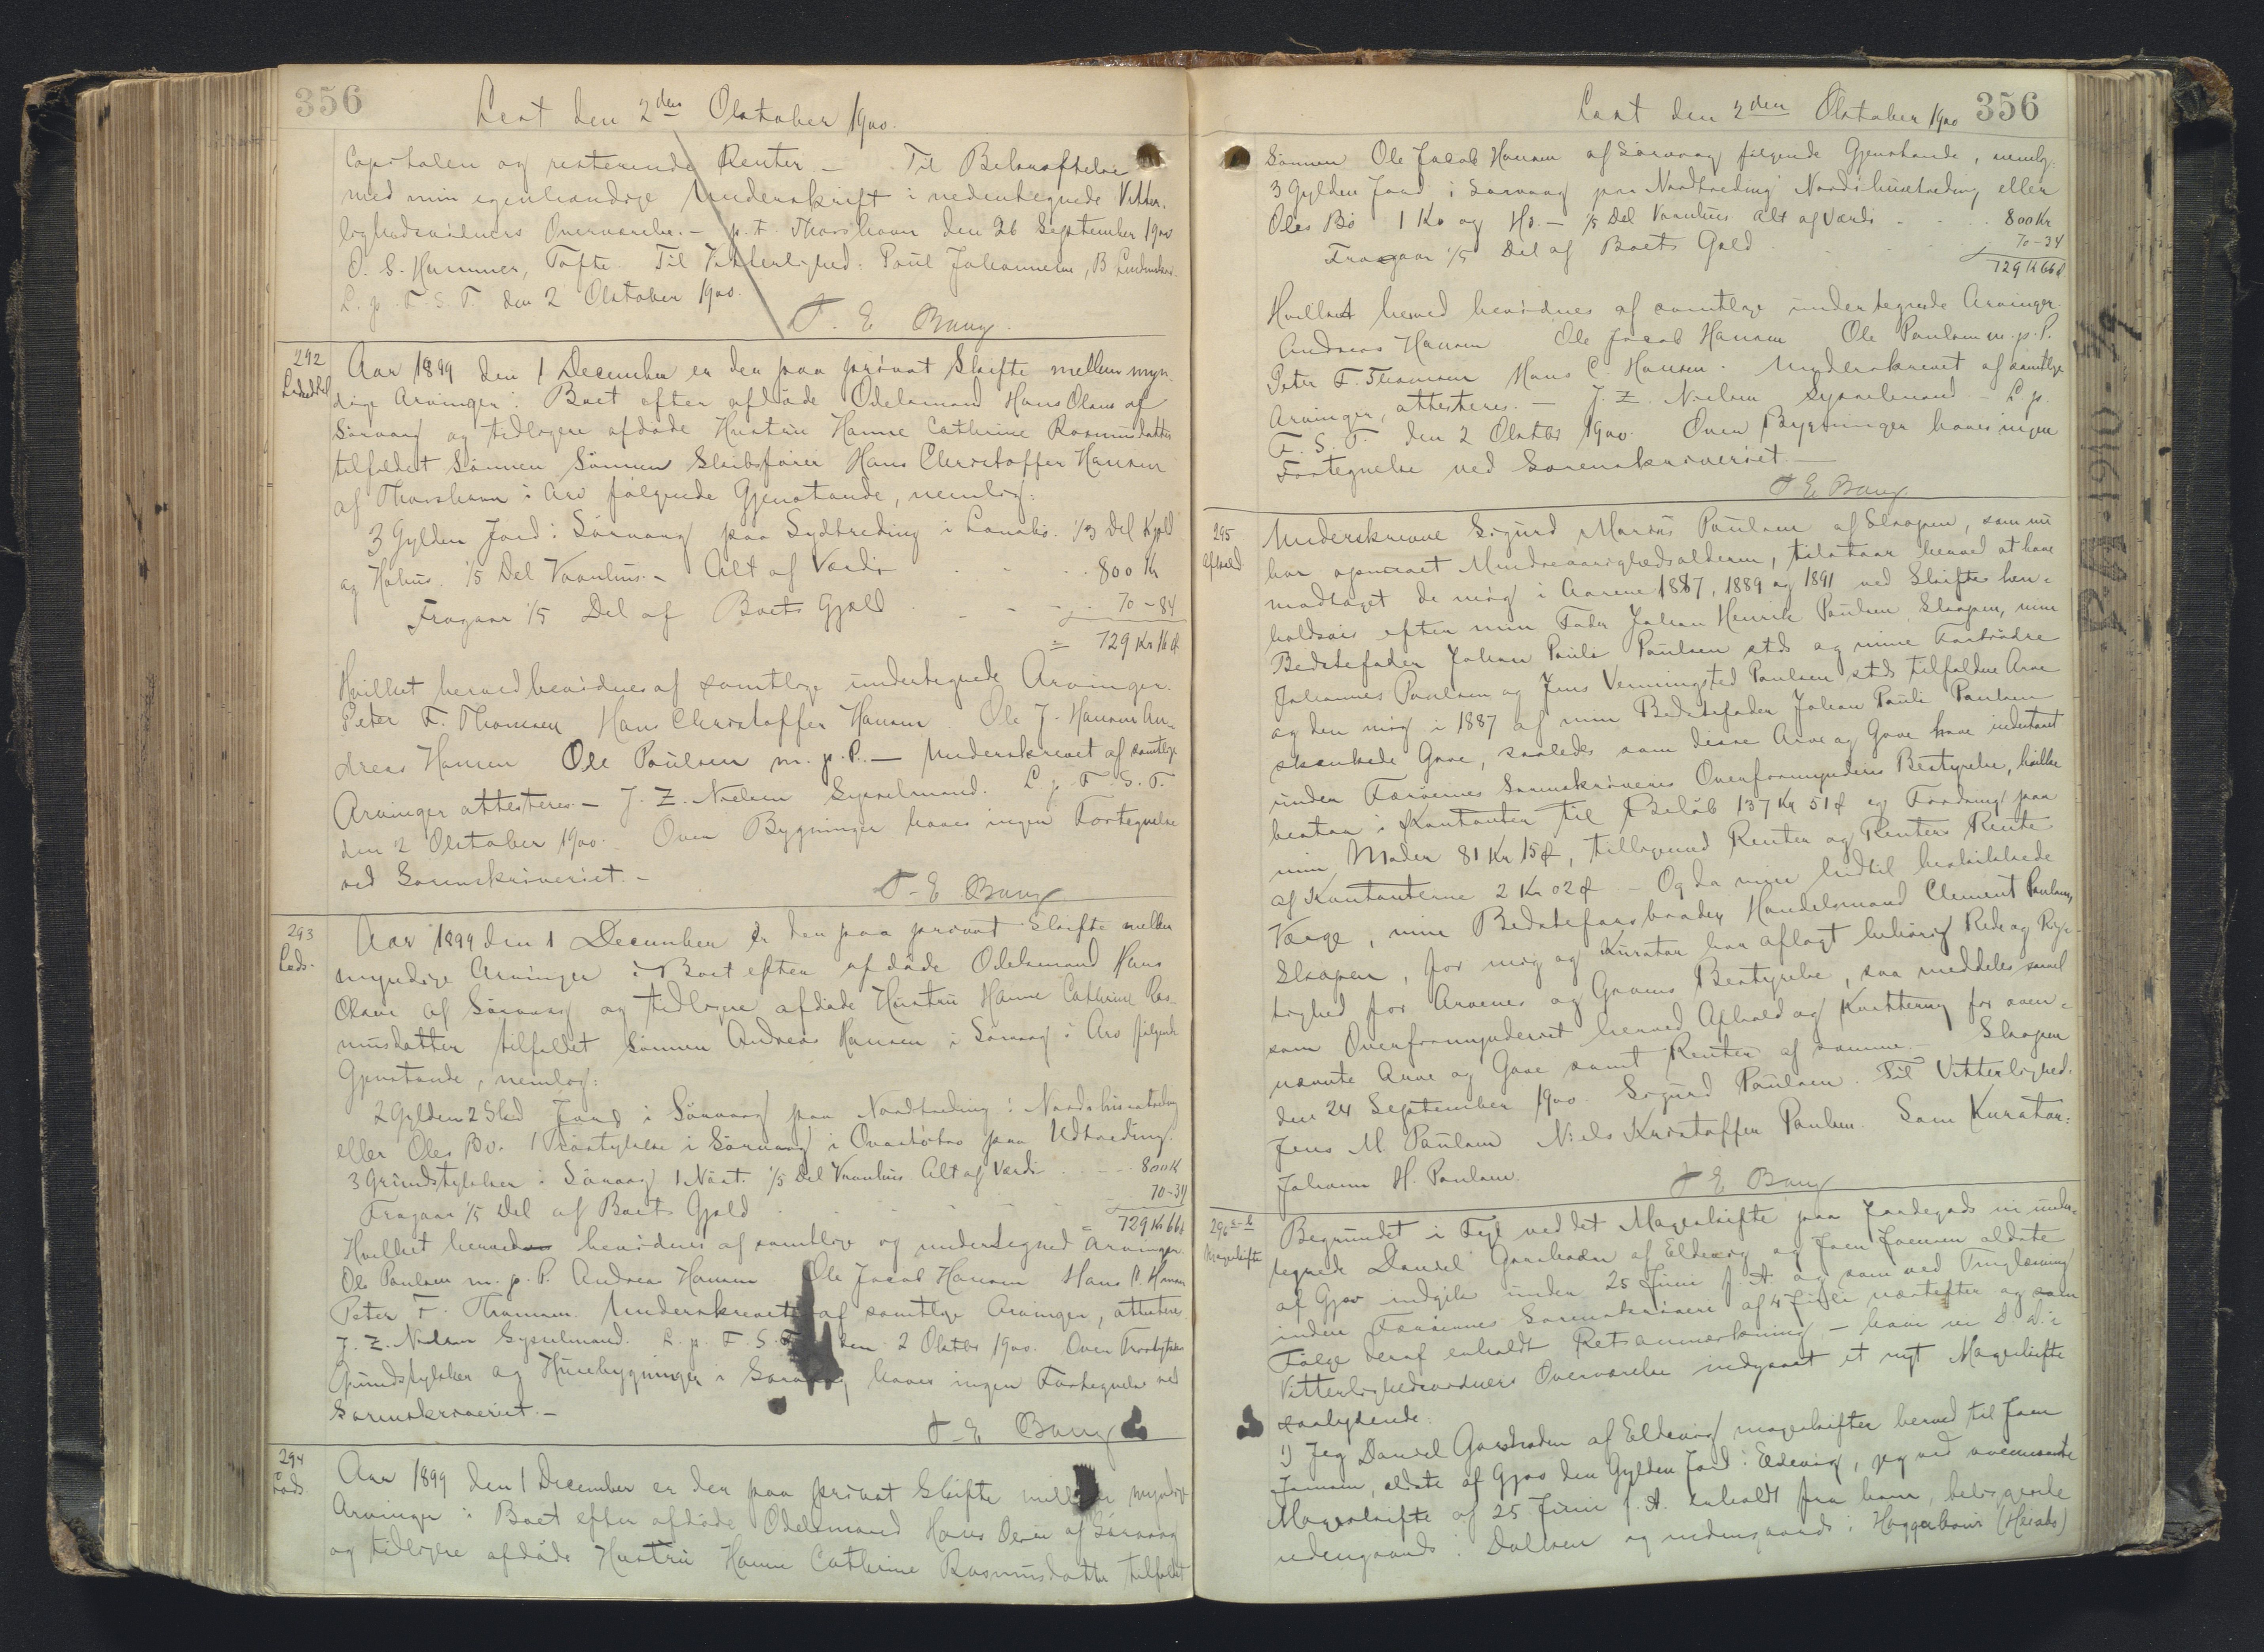 356
Læst den 2den Oktober 1900.
Capitalen og resterende Renter. — Til Bekræftelse
med min egenhændige Underskrift i nedentegnede Vitter-
lighedsvidners Overværelse. — p. t. Thorshavn den 26 September 1900
O. S. Hammer, Tofte. Til Vitterlighed: Poul Johannesen, B
L. p. F. S. T. den 2 Oktober 1900.
T. E Bang.
292
Aar 1899 den 1 December er der paa privat Skifte mellem myn-
dige Arvinger i Boet efter afdøde Odelsmand Hans Olava af
Sørvaag og tidligere afdøde Hustru Hanne Cathrine Rasmusdatter
tilfaldet Sønnen Sønnen Skibsfører Hans Christoffer Hansen
af Thorshavn i Arv følgende Gjenstande, nemlig:
3 Gylden Jord i Sørvaag paa Sydtreding i 1/3 Del
og Høhus. 1/5 Del Vaanhus. — Alt af Værdi - - - 800 Kr
Fragaar 1/5 Del af Boets Gjæld - - - 70-84
= 729 Kr 16 Ø
Hvilket herved bevidnes af samtlige undertegnede Arvinger.
Peter F. Thomsen Hans Christoffer Hansen Ole J. Hansen An-
dreas Hansen Ole Poulsen m. p. P. — Underskrevet af samtlige
Arvinger attesteres. — J. Z. Nielsen Sysselmand. L. p. F. S. T.
den 2 Oktober 1900. Over Bygninger haves ingen Fortegnelse
ved Sorenskriveriet. —
T. E. Bang
293
Aar 1899 den 1 December er der paa privat Skifte mellem
myndige Arvinger i Boet efter afdøde Odelsmand Hans
Olava af Sørvaag og tidligere afdøde Hustru Hanne Cathrine Ras-
musdatter tilfaldet Sønnen Andreas Hansen i Sørvaag i Arv følgende
Gjenstande, nemlig:
2 Gylden 2 Skd Jord i Sørvaag paa Nordtreding i Nordihustreding
eller Oles Bø. 1 Trøstykke i Sørvaag i paa Udtreding.
3 Grundstykker i Sørvaag 1 Nøst. 1/5 Del Vaanhus Alt af Værdi - - - 800 K
Fragaar 1/5 Del af Boets Gjæld - - - 70-34
= 729 Kr 66
Hvilket herved bevidnes af samtlige og undertegned Arvinger.
Ole Poulsen m. p. P. Andreas Hansen Ole Jacob Hansen Hans C. Hansen
Peter F. Thomsen. Underskrevet af samtlige Arvinger, attesteres
J. Z. Nielsen Sysselmand. L. p. F. S. T. den 2 Oktbr 1900. Over Trøstykker
Grundstykker og Husebygninger i Sørvaag haves ingen Fortegnelse ved
Sorenskriveriet. —
T. E Bang
294
Aar 1899 den 1 December er der paa privat Skifte mellem myndige
Arvinger i Boet efter afdøde Odelsmand Hans Olava af Sørvaag
og tidligere afdøde Hustru Hanne Cathrine Rasmusdatter tilfaldet
Læst den 2den Oktober 1900
356
Sønnen Ole Jacob Hansen af Sørvaag følgende Gjenstande, nemlig:
3 Gylden Jord i Sørvaag paa Nordtreding Nordihustreding eller
Oles Bø 1 Ko og Hø. — 1/5 Del Vaanhus Alt af Værdi - - - 800 Kr
Fragaar 1/5 Del af Boets Gæld 70-34
729 Kr 66 Ø
Hvilket herved bevidnes af samtlige undertegnede Arvinger.
Andreas Hansen Ole Jacob Hansen Ole Poulsen m. p. P.
Peter F. Thomsen Hans C. Hansen. Underskrevet af samtlige
Arvinger, attesteres. — J. Z. Nielsen Sysselmand — L. p.
F. S. T. den 2 Oktbr 1900. Over Bygninger haves ingen
Fortegnelse ved Sorenskriveriet. —
T. E. Bang
295
Afkald
Underskrevne Sigurd Marius Poulsen af Skaapen, som nu
har opnaaet Mindreaarighedsalderen, tilstaar herved at have
modtaget de mig i Aarene 1887, 1889 og 1891 ved Skifter hen-
holdsvis efter min Fader Johan Henrik Poulsen, Skaapen, min
Bedstefader Johan Pauli Poulsen stds og mine Farbrødre
Johannes Poulsen og Jens Venningsted Poulsen stds tilfaldne Arve
og den mig i 1887 af min Bedstefader Johan Pauli Poulsen
skænkede Gave, saaledes som disse Arve og Gave have indestaaet
under Færøernes Sorenskriveries Overformynderies Bestyrelse, hvilke
bestaar i Kontanter til Beløb 137 Kr 51 Ø og Fordring paa
min Moder 81 Kr 15 Ø, tilligemed Renter og Renters Rente
af Kontanterne 2 Kr 02 Ø — Og da min hidtil beskikkede
Værge, min Bedstefarsbroder Handelsmand Clement Poulsen,
Skaapen, for mig og Kurator har aflagt behørig Rede og Rig-
tighed for Arvenes og Gavens Bestyrelse, saa meddeles saavel
som Overformynderiet herved Afkald og Kvittering for oven-
nævnte Arve og Gave samt Renter af samme. — Skaapen
den 24 September 1900. Sigurd Poulsen. Til Vitterlighed:
Jens M. Poulsen Niels Kristoffer Poulsen. Som Kurator:
Johann H. Poulsen.
T E Bang
296 a-b
Mageskifte
Begrundet i Fejl ved det Mageskifte paa Jordegods vi under-
tegnede Daniel Garshodn af Eldevig og Joen Joensen ældste
af Gjov indgik under 25 Juni f. A. og som ved Tinglæsning
inden Færøernes Sorenskriveri af 4 Juli næstefter og som
Følge deraf erholdt Retsanmærkning, — have vi D. D. i
Vitterlighedsvidners Overværelse indgaaet et nyt Mageskifte
saalydende:
1) Jeg Daniel Garshodn af Eldevig mageskifter herved til Joen
Joensen, ældste af Gjov den Gylden Jord i Eldevig, jeg ved ovennævnte
Mageskifte af 25 Juni f. A. erholdt fra ham, beliggende
udengaards i Dalken og indengaards i Høggabouir (Heiade)